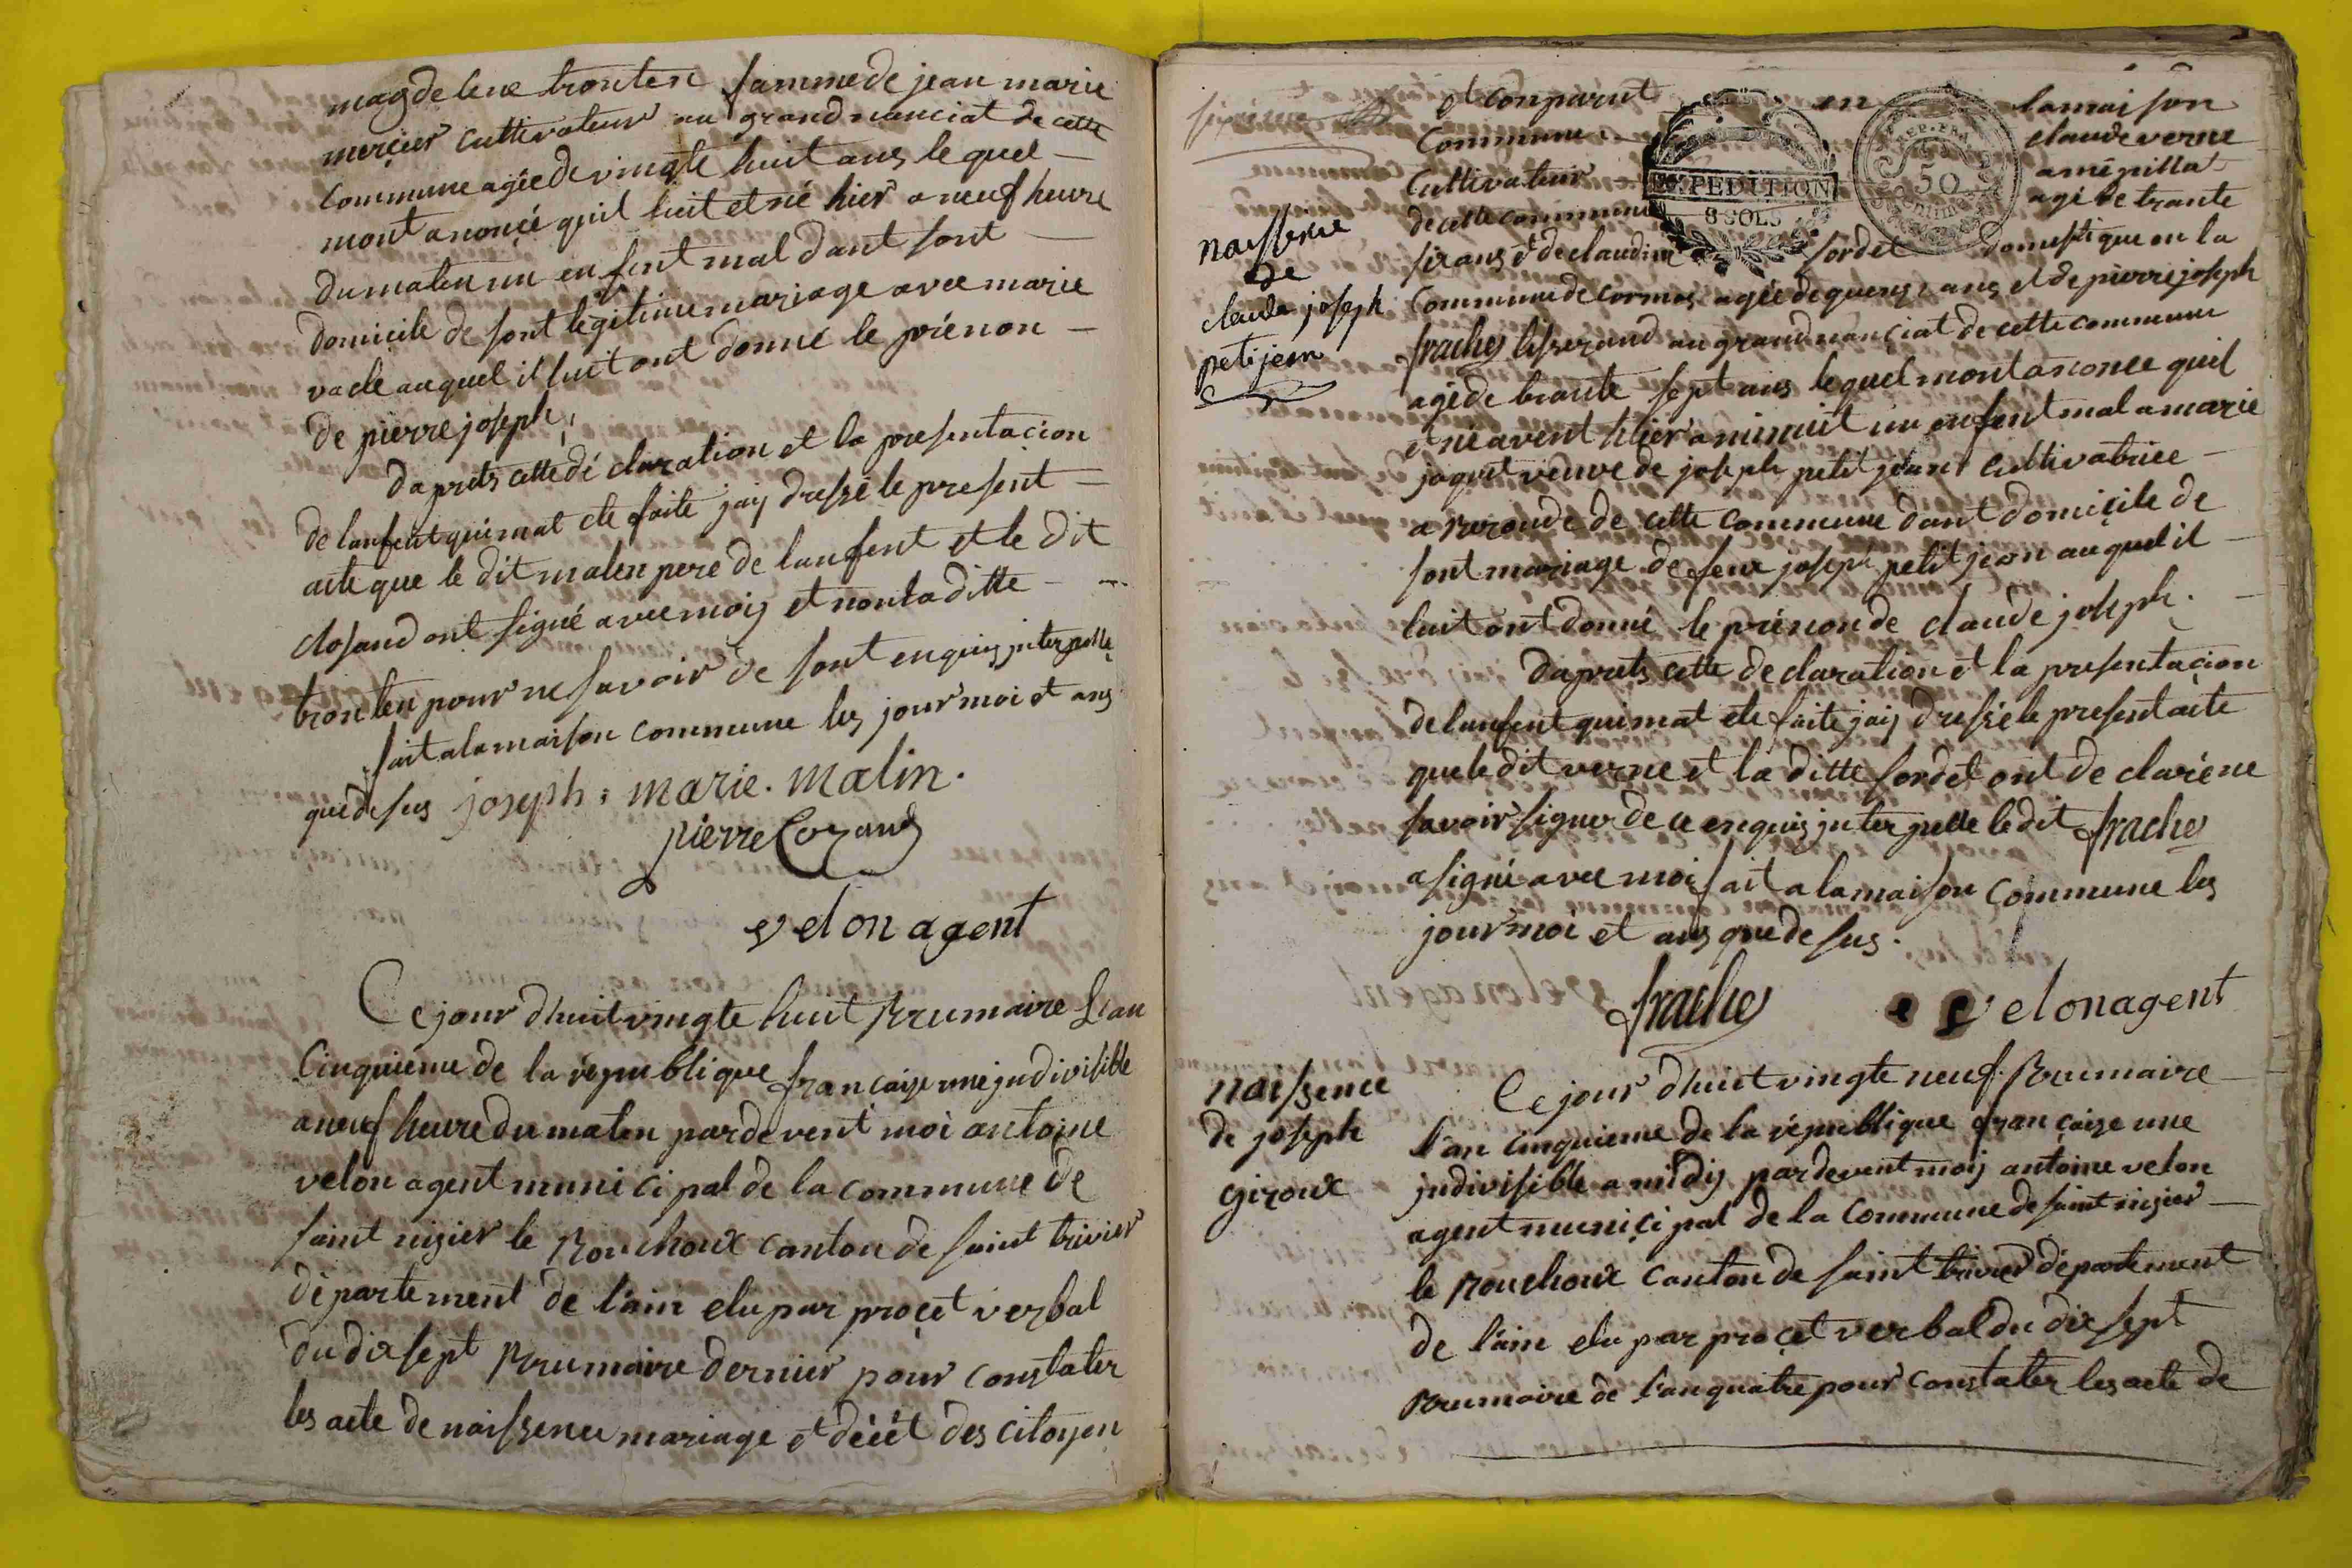 magdelene tronten famme de jean marie
mercier cultivateur au grand nanciat de cette
commune agée de vingte huit ans le quel
mont anoncé quil luit et né hier a neuf heure
du maten un enfent mal dant sont
domicile de sont legitime mariage avec marie
vacle auquel il luit ont donné le prénon
de pierre joseph,
daprets cette dé claration et la presentacion
de lanfent quimat ete faite jaij dressé le present
acte que le dit malen pere de lanfent et le dit
closand ont signé avec moij et non la ditte
tronten pour ne savoir de sont enquis jnterpelle
fait a la maison commune les jour moi et ans
que desus joseph : marie . malin .
pierre Cozand
velon agent
Ce jour dhuit vingte huit Brumaire Lan
Cinquieme de la république francaize une jndivisible
a neuf heure du maten pardevent moi antoine
velon agent municipal de la commune de
saint nizier le Bouchoux canton de saint trivier
département de lain elu par procet verbal
du dix sept Brumaire dernier pour constater
les acte de naissence mariage et décét des citoyen
et conparut en la maison
Commune claude verne
Cultivateur a mépilla
de cette commune agé de trante
sixans et de claudine sordet domestique en la
commune de cormos agée de quenze ans et de pierre joseph
naissence
de
claude joseph
petijean
fraches tisserand au grand nanciat de cette commune
agé de trante sept ans lequel mont anonce quil
et né avent hier a minuit un enfent mal a marie
jaquet veuve de joseph petit jean cultivatrice
a Baronde de cette commune dant domicile de
sont mariage de feux joseph petit jean auquel il
luit ont donné le prénon de claude joseph.
daprets cette declaration et la presentacion
de lanfent quimat ete faite jaij dressé le present acte
que le dit verne et la ditte sordet ont de claréne
savoir signer de ce enquis jnterpelle le dit fraches
a signé avec moi fait a la maison commune les
jour moi et ans que desus .
fraches velon agent
naissence
de joseph
giroux
Ce jour dhuit vingte neuf Brumaire
l'an cinquieme de la république francaize une
jndivisible a midij pardevent moij antoine velon
agent municipal de la Commune de saint nizier
le Bouchoux canton de saint trivier département
de l'ain elu par procet verbal du dix sept
Brumaire de l'an quatre pour constater les acte de
EXPEDITION
8 SOLS
REP. FRA.
50
centimes